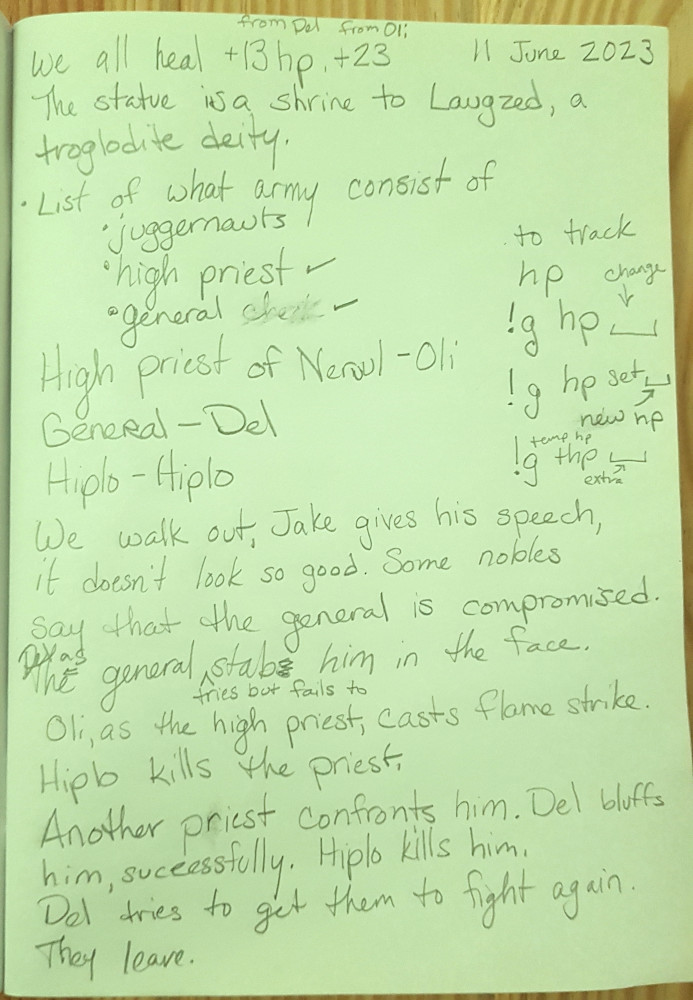 from Del from Oli
We all heal +13 hp, +23 11 June 2023
The statue is a shrine to Laugzed, a
troglodite deity.
• List of what army consist of
• juggernauts
• high priest ✓
• general ✓
to track
hp change
!g hp ⎵
!g hp set ⎵
new hp
temp hp
!g thp ⎵
extra
High priest of Nerull - Oli
General - Del
Hiplo - Hiplo
We walk out, Jake gives his speech,
it doesn't look so good. Some nobles
say that the general is compromised.
Del as
The general stabs him in the face.
tries but fails to
Oli, as the high priest, casts flame strike.
Hiplo kills the priest.
Another priest confronts him. Del bluffs
him, successfully. Hiplo kills him.
Del tries to get them to fight again.
They leave.